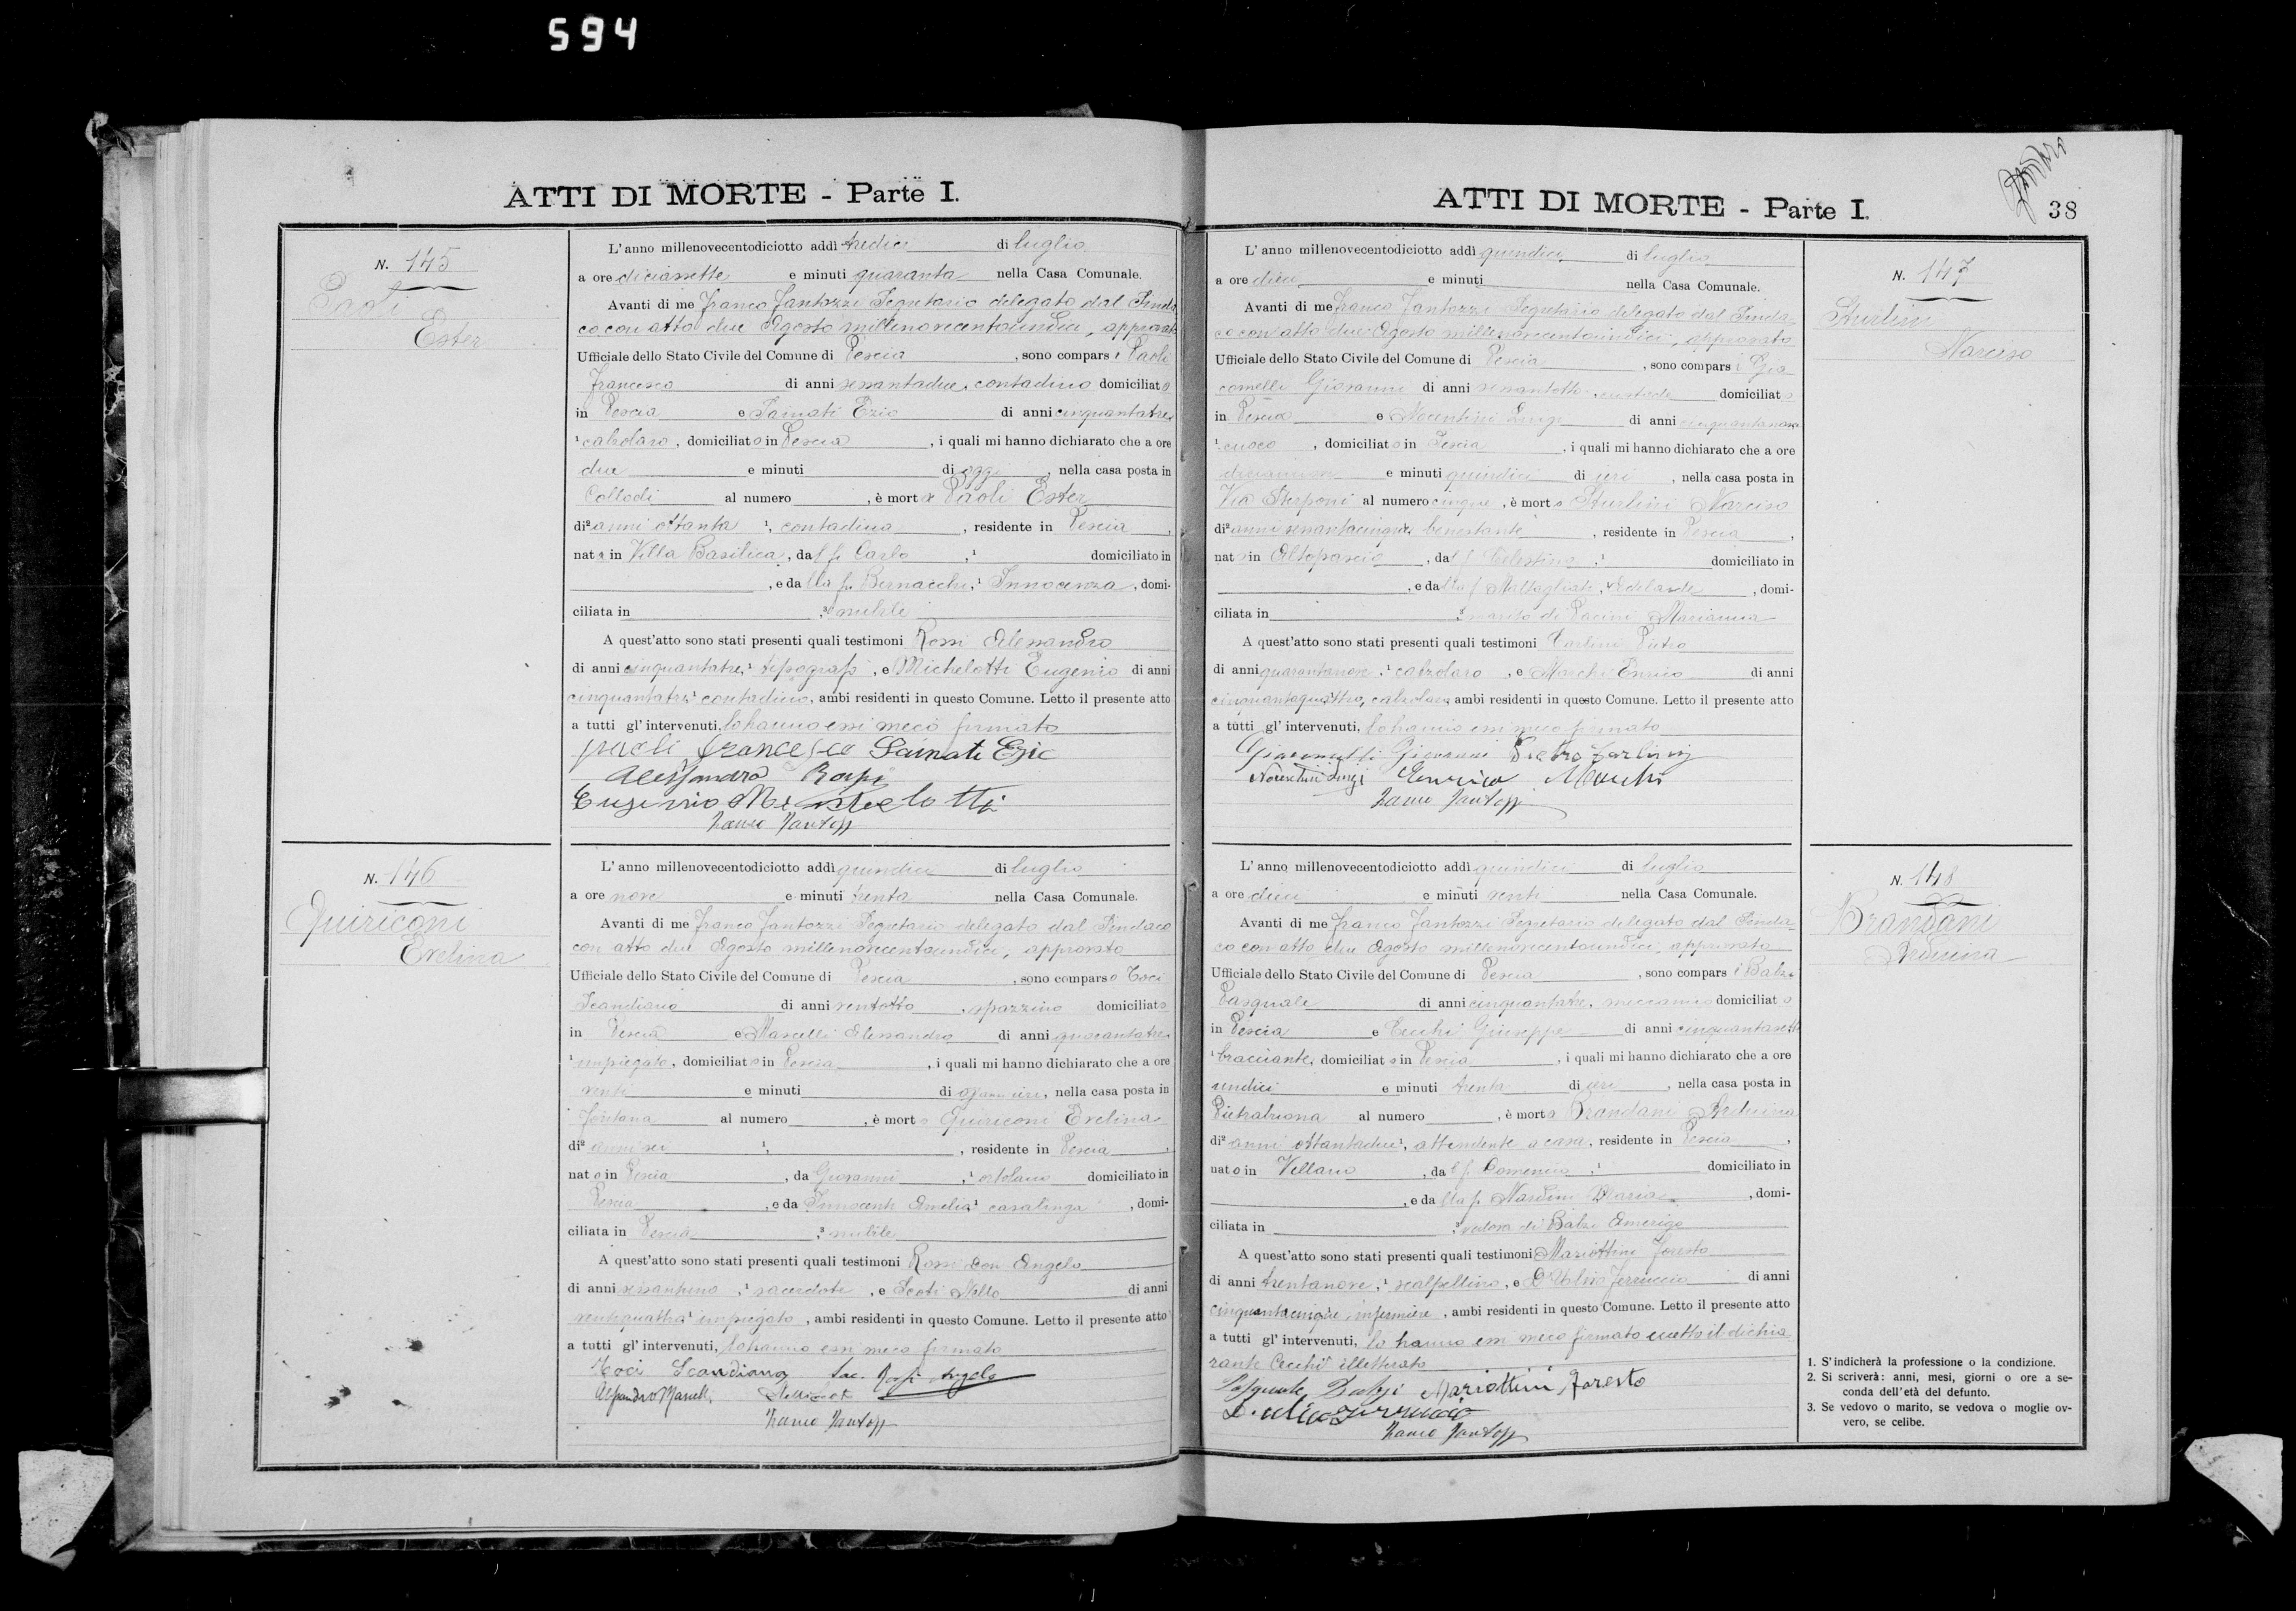 594
ATTI DI MORTE - Parte I.
N. 145
Paoli
Ester
L'anno millenovecentodiciotto addì tredici di luglio
a ore diciassette e minuti quaranta nella Casa Comunale.
Avanti di me Franco Fantozzi Segretario delegato dal Sinda
co con atto due Agosto millenovecentoundici, approvato
Ufficiale dello Stato Civile del Comune di Pescia, sono comparsi Paoli
Francesco di anni sessantadue, contadino domiciliato
in Pescia e Sainati Ezio di anni cinquantatre
1 calzolaro, domiciliato in Pescia, i quali mi hanno dichiarato che a ore
due e minuti di oggi, nella casa posta in
Collodi al numero, è morta Paoli Ester
di 2 anni ottanta 1, contadina, residente in Pescia,
nata in Villa Basilica, dal f. Carlo, 1 domiciliato in
, e da lla f. Bernacchi, 1 Innocenza, domi-
ciliata in , 3 nubile
A quest'atto sono stati presenti quali testimoni Rossi Alessandro
di anni cinquantatre, 1 tipografo, e Michelotti Eugenio di anni
cinquantatre, 1 contadino, ambi residenti in questo Comune. Letto il presente atto
a tutti gl'intervenuti, lo hanno essi meco firmato
Paoli Francesco Sainati Ezio
Alessandro Rossi
Eugenio Michelotti
Franco Fantozzi
N. 146
Quiriconi
Evelina
L'anno millenovecentodiciotto addì quindici di luglio
a ore nove e minuti trenta nella Casa Comunale.
Avanti di me Franco Fantozzi Segretario delegato dal Sindaco
con atto due Agosto millenovecentoundici, approvato
Ufficiale dello Stato Civile del Comune di Pescia, sono comparso Toci
Scandiano di anni ventotto, spazzino domiciliato
in Pescia e Marcelli Alessandro di anni quarantatre
1 impiegato, domiciliato in Pescia, i quali mi hanno dichiarato che a ore
venti e minuti di ieri, nella casa posta in
Fontana al numero, è morta Quiriconi Evelina
di 2 anni sei 1, , residente in Pescia,
nata in Pescia, da Giovanni, 1 ortolano domiciliato in
Pescia, e da Innocenti Amelia, 1 casalinga, domi-
ciliata in Pescia, 3 nubile
A quest'atto sono stati presenti quali testimoni Rossi Don Angelo
di anni sessantuno, 1 sacerdote, e Scoti Nello di anni
ventiquattro 1 impiegato, ambi residenti in questo Comune. Letto il presente atto
a tutti gl'intervenuti, lo hanno essi meco firmato
Toci Scandiano Sac. Rossi Angelo
Alessandro Marcelli
Franco Fantozzi
ATTI DI MORTE - Parte I.
38
N. 147
Sturlini
Narciso
L'anno millenovecentodiciotto addì quindici di luglio
a ore dieci e minuti nella Casa Comunale.
Avanti di me Franco Fantozzi Segretario delegato dal Sinda-
co con atto due Agosto millenovecentoundici, approvato
Ufficiale dello Stato Civile del Comune di Pescia, sono comparsi Gia
comelli Giovanni di anni sessantotto, custode domiciliato
in Pescia e Nocentini Luigi di anni cinquantanove
1 cuoco, domiciliato in Pescia, i quali mi hanno dichiarato che a ore
diciannove e minuti quindici di ieri, nella casa posta in
Via Sterponi al numero cinque, è morto Sturlini Narciso
di 2 anni sessantacinque, benestante, residente in Pescia,
nato in Altopascio, dal f. Celestino, 1 domiciliato in
, e dalla f. Maltagliati, Adelaide, domi-
ciliata in , 3 marito di Pacini Marianna
A quest'atto sono stati presenti quali testimoni Carlini Pietro
di anni quarantanove, 1 calzolaro, e Marchi Enrico di anni
cinquantaquattro, calzolaro, ambi residenti in questo Comune. Letto il presente atto
a tutti gl'intervenuti, lo hanno essi meco firmato
Giacomelli Giovanni Pietro Carlini
Nocentini Luigi Enrico Marchi
Franco Fantozzi
N. 148
Brandani
Arduina
L'anno millenovecentodiciotto addì quindici di luglio
a ore dieci e minuti venti nella Casa Comunale.
Avanti di me Franco Fantozzi Segretario delegato dal Sinda-
co con atto due Agosto millenovecentoundici, approvato
Ufficiale dello Stato Civile del Comune di Pescia, sono comparsi Balzi
Pasquale di anni cinquantatre, meccanico domiciliato
in Pescia e Cecchi Giuseppe di anni cinquantasette
1 bracciante, domiciliato in Pescia, i quali mi hanno dichiarato che a ore
undici e minuti trenta di ieri, nella casa posta in
Pietrabuona al numero, è morta Brandani Arduina
di 2 anni ottantadue 1, attendente a casa, residente in Pescia,
nata in Vellano, dal f. Domenico, 1 domiciliato in
, e dalla f. Nardini Maria, domi-
ciliata in , 3 vedova di Balzi Amerigo
A quest'atto sono stati presenti quali testimoni Mariottini Foresto
di anni trentanove, 1 scalpellino, e D'Ulivo Ferruccio di anni
cinquantacinque, infermiere, ambi residenti in questo Comune. Letto il presente atto
a tutti gl'intervenuti, lo hanno essi meco firmato eccetto il dichia
rante Cecchi illetterato
Pasquale Balzi Mariottini Foresto
D'Ulivo Ferruccio
Franco Fantozzi
1. S'indicherà la professione o la condizione.
2. Si scriverà: anni, mesi, giorni o ore a se-
conda dell'età del defunto.
3. Se vedovo o marito, se vedova o moglie ov-
vero, se celibe.